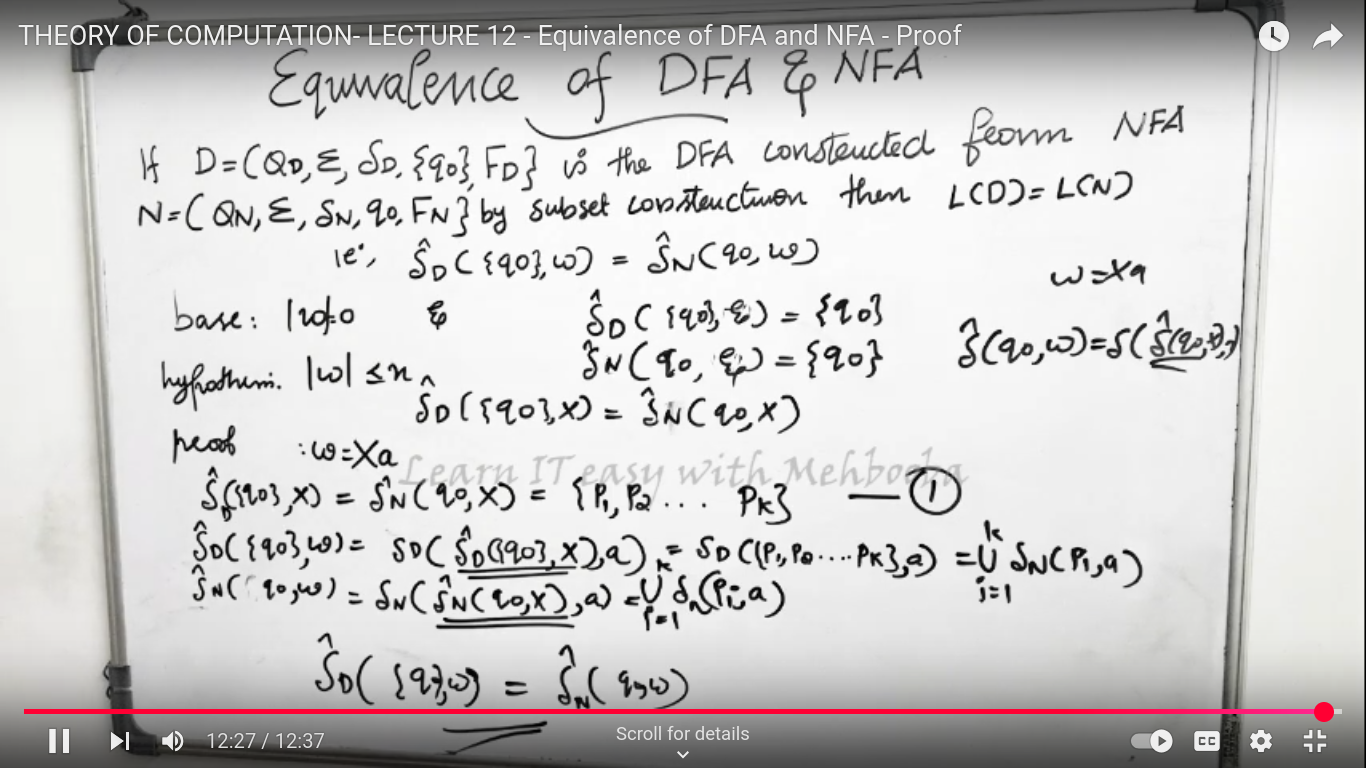 THEORY OF COMPUTATION- LECTURE 12 - Equivalence of DFA and NFA - Proof
Equivalence of DFA & NFA
If D=(QD, Σ, δD, {q0}, FD} is the DFA constructed from NFA
N=(QN, Σ, δN, q0, FN} by subset construction then L(D)=L(N)
ie', δ̂D({q0},w) = δ̂N(q0,w)
w=Xa
base: |w|=0 ε δ̂D({q0},ε) = {q0}
δ̂N(q0, ε) = {q0}
δ̂(q0,w)=δ(δ̂(q0,x),
hypothesis. |w| ≤n
δ̂D({q0},x) = δ̂N(q0,x)
proof :w=Xa
Learn IT easy with Mehbooba
δ̂D({q0},x) = δ̂N(q0,x) = {P1,P2... Pk} — 1
δ̂D({q0},w)= δD(δ̂D({q0},x),a) = δD({P1,P2....Pk},a) = k∪i=1 δN(Pi,a)
δ̂N(q0,w) = δN(δ̂N(q0,x),a) = k∪i=1 δn(Pi,a)
δ̂D({q},w) = δ̂N(q,w)
12:27 / 12:37
Scroll for details
CC